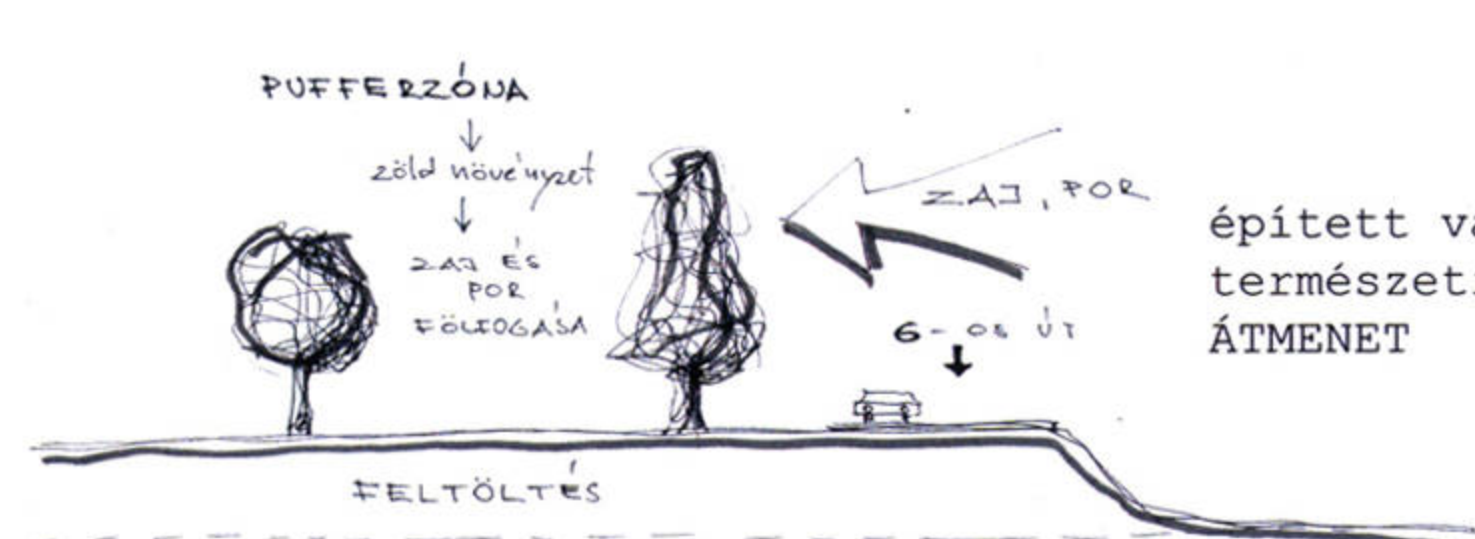 PUFFERZÓNA
zöld növényzet
ZAJ ÉS
POR
FÖLFOGÁSA
ZAJ, POR
6-OS ÚT
FELTÖLTÉS
épített
természeti
ÁTMENET